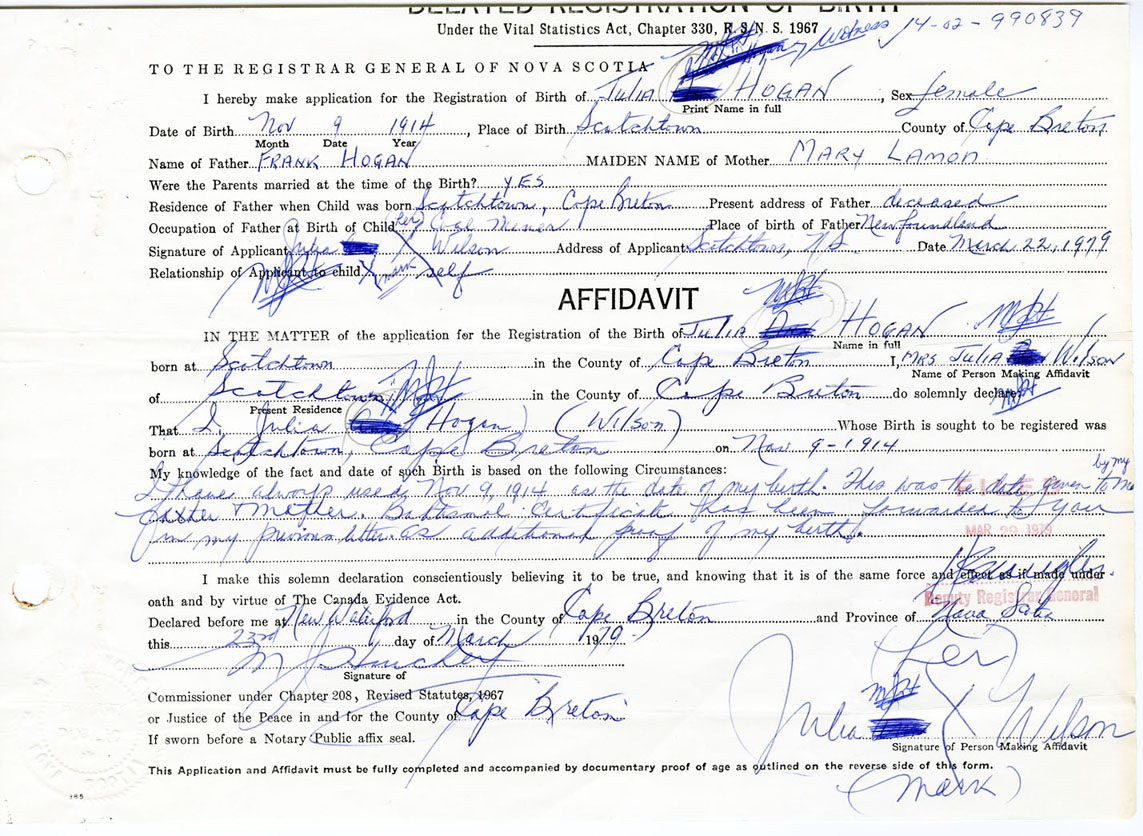 DELAYED REGISTRATION OF BIRTH
Under the Vital Statistics Act, Chapter 330, R. S. N. S. 1967
Witness 14-02-990839
TO THE REGISTRAR GENERAL OF NOVA SCOTIA
I hereby make application for the Registration of Birth of JULIA HOGAN, Sex female
Print Name in full
Date of Birth Nov 9 1914, Place of Birth Scotchtown County of Cape Breton
Month Date Year
Name of Father FRANK HOGAN MAIDEN NAME of Mother MARY LAMON
Were the Parents married at the time of the Birth? YES
Residence of Father when Child was born Scotchtown, Cape Breton Present address of Father deceased
Occupation of Father at Birth of Child Coal Miner Place of birth of Father Newfoundland
(her)
Signature of Applicant Julia X Wilson Address of Applicant Scotchtown, N.S. Date March 22, 1979
Relationship of Applicant to child self
mark
AFFIDAVIT
MJH
IN THE MATTER of the application for the Registration of the Birth of JULIA HOGAN MJH
Name in full
born at Scotchtown in the County of Cape Breton I, MRS JULIA Wilson
Name of Person Making Affidavit
of Scotchtown MJH in the County of Cape Breton do solemnly declare: MJH
Present Residence
That I, Julia Hogan (Wilson) Whose Birth is sought to be registered was
born at Scotchtown, Cape Breton on Nov 9-1914
My knowledge of the fact and date of such Birth is based on the following Circumstances:
by my
I have always used Nov 9, 1914 as the date of my birth. This was the date given to me
Father & Mother. Baptismal Certificate has been forwarded to you
in my previous letter as additional proof of my birth.
FILED
MAR 29 1979
I make this solemn declaration conscientiously believing it to be true, and knowing that it is of the same force and effect as if made under
oath and by virtue of The Canada Evidence Act.
Deputy Registrar General
Declared before me at New Waterford in the County of Cape Breton and Province of Nova Scotia
this 23rd day of March 1979
Signature of
(her)
Commissioner under Chapter 208, Revised Statutes, 1967
or Justice of the Peace in and for the County of Cape Breton
MJH
Julia X Wilson
If sworn before a Notary Public affix seal.
Signature of Person Making Affidavit
This Application and Affidavit must be fully completed and accompanied by documentary proof of age as outlined on the reverse side of this form.
(mark)